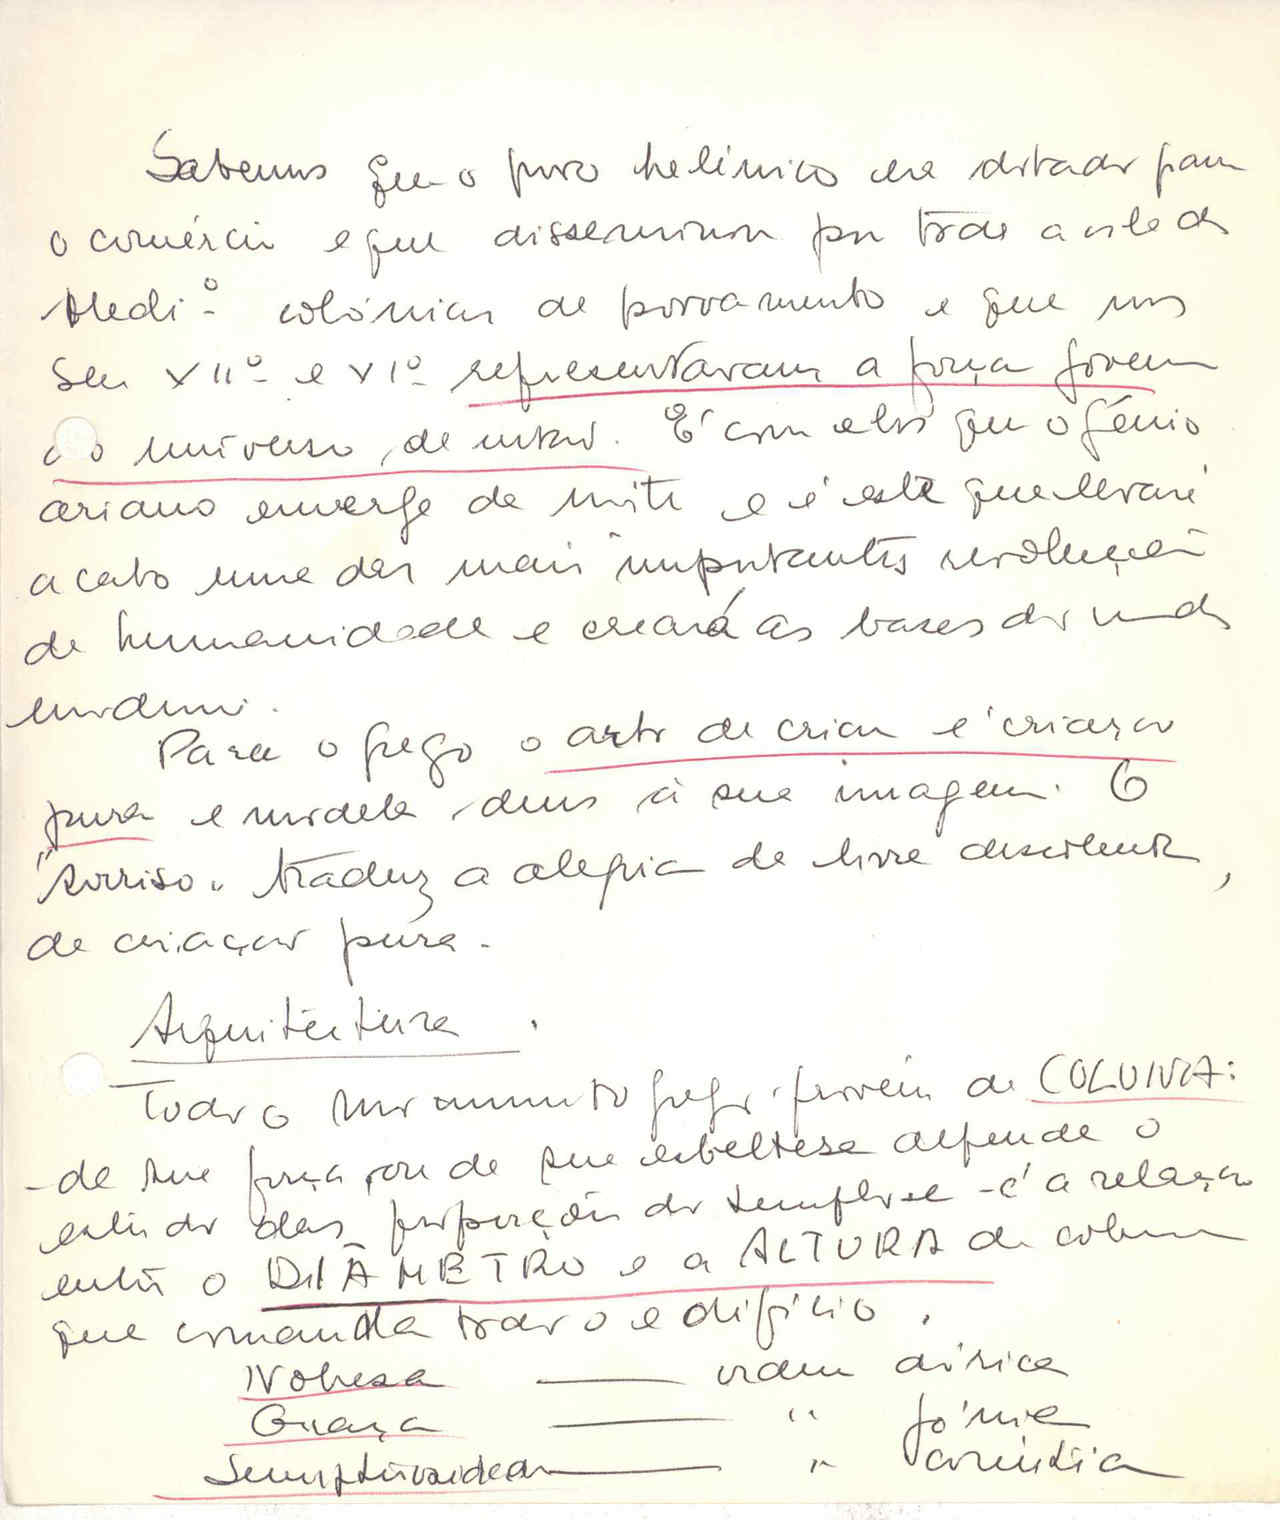 Sabemos que o povo helénico era dotado para
o comércio e que disseminou por toda a orla do
Medi.º colónias de povoamento e que nos
sec VIIº e VIº representaram a força jovem
do universo de então. É com eles que o génio
ariano emerge do mito e é este que levará
a cabo uma das mais importantes revoluções
da humanidade e creará as bases do mundo
moderno.
Para o grego o acto de criar é criação
pura e modela deus à sua imagem. O
"sorriso" traduz a alegria da livre descoberta,
da criação pura.
Arquitectura.
Todo o monumento grego provém da COLUNA:
- da sua força ou da sua esbelteza depende o
estudo das proporções do templo e - é a relação
entre o DIÂMETRO e a ALTURA da coluna
que comanda todo o edifício.
Nobreza — ordem dórica
Graça — " jónica
Sumptuosidade — " coríntia